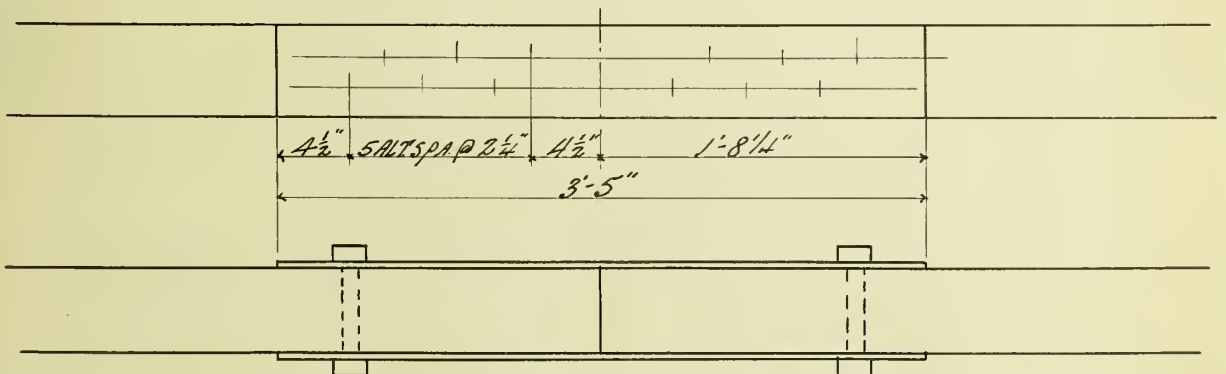 4½" 5ALT.SPA.@2¼" 4½" 1'-8¼"
3'-5"